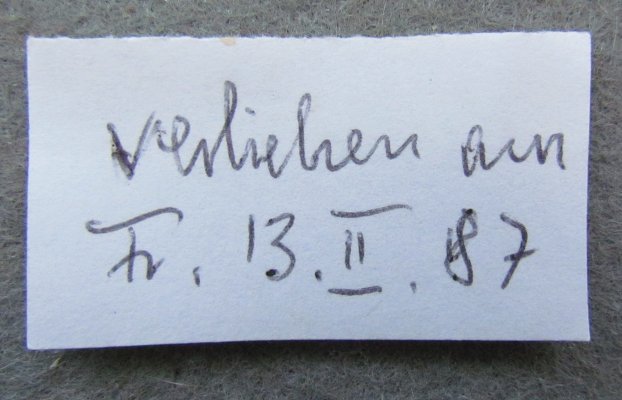 verliehen am
Fr. 13. II. 87